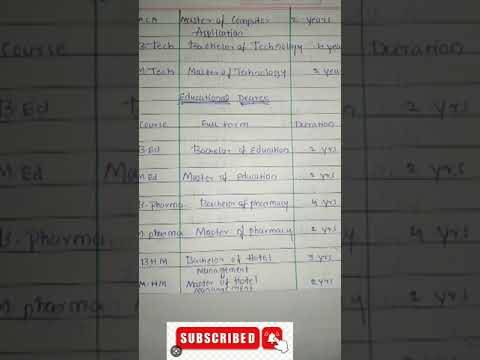 MCA Master of Computer 2 years
Application
B.Tech Bachelor of Technology 4 yea
M.Tech Master of Technology 2 yea
Educational Degree
Course Full form Duration
B.Ed Bachelor of Education 2 yrs
M.Ed Master of Education 2 yrs
B.pharma Bachelor of pharmacy 4 yrs
M pharma Master of pharmacy 2 yrs
BHM Bachelor of Hotel 3 yrs
Management
M.HM Master of Hotel 2 yrs
Management
SUBSCRIBED
Course
B.Ed
M.Ed
B.pharma
M pha
Duration
2 yrs
2 yrs
4 yrs
2 yrs